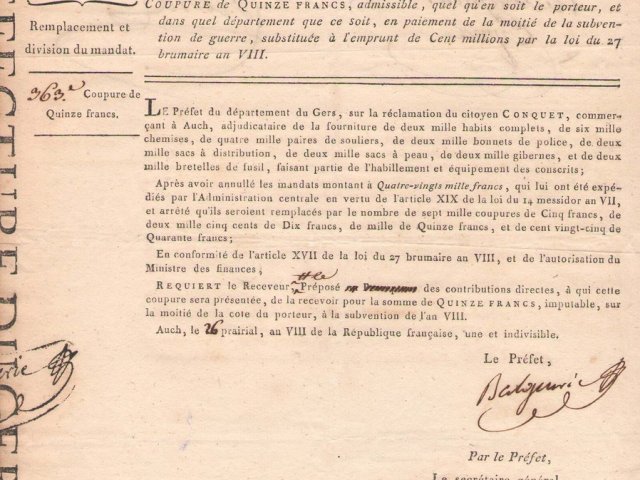 Remplacement et
division du mandat.
363.e Coupure de
Quinze francs.
COUPURE de QUINZE FRANCS, admissible, quel qu'en soit le porteur, et
dans quel département que ce soit, en paiement de la moitié de la subven-
tion de guerre, substituée à l'emprunt de Cent millions par la loi du 27
brumaire an VIII.
LE Préfet du département du Gers, sur la réclamation du citoyen CONQUET, commer-
çant à Auch, adjudicataire de la fourniture de deux mille habits complets, de six mille
chemises, de quatre mille paires de souliers, de deux mille bonnets de police, de deux
mille sacs à distribution, de deux mille sacs à peau, de deux mille gibernes, et de deux
mille bretelles de fusil, faisant partie de l'habillement et équipement des conscrits;
Après avoir annullé les mandats montant à Quatre-vingts mille francs, qui lui ont été expé-
diés par l'Administration centrale en vertu de l'article XIX de la loi du 14 messidor an VII,
et arrêté qu'ils seroient remplacés par le nombre de sept mille coupures de Cinq francs, de
deux mille cinq cents de Dix francs, de mille de Quinze francs, et de cent vingt-cinq de
Quarante francs;
En conformité de l'article XVII de la loi du 27 brumaire an VIII, et de l'autorisation du
Ministre des finances,
REQUIERT le Receveur Préposé des contributions directes, à qui cette
coupure sera présentée, de la recevoir pour la somme de QUINZE FRANCS, imputable, sur
la moitié de la cote du porteur, à la subvention de l'an VIII.
Auch, le 26 prairial, an VIII de la République française, une et indivisible.
Le Préfet,
Balguerie
Par le Préfet,
Le secrétaire général